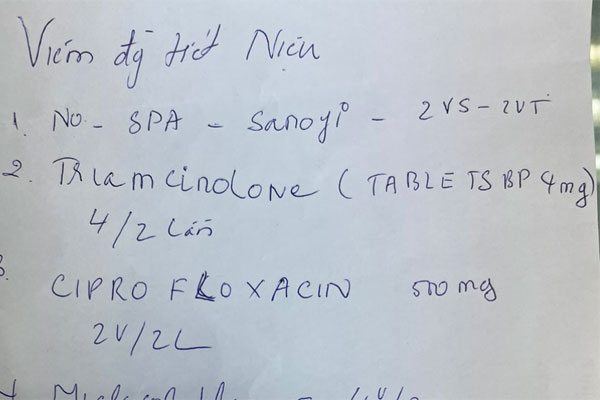 Viêm đg tiết Niệu
1. No - SPA - Sanofi - 2VS - 2VT
2. TRIamcinolone (TABLETS BP 4mg)
4/2 Lần
3. CIPROFLOXACIN 500mg
2V/2L